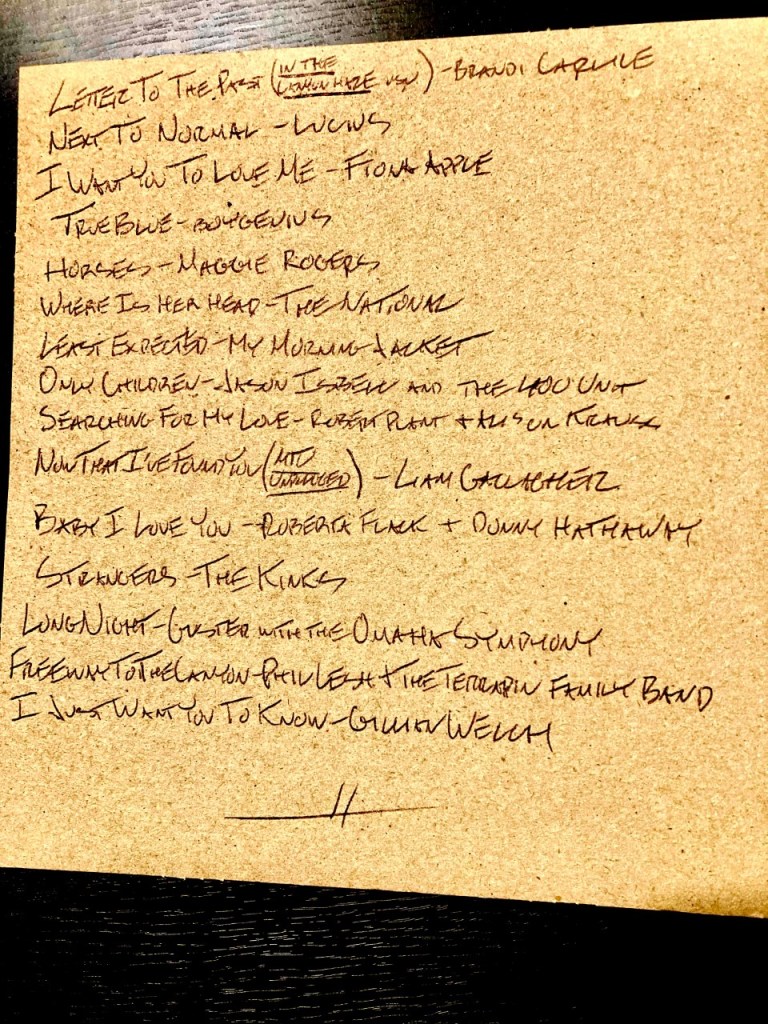 LETTER TO THE PAST (IN THE CANYON HAZE VSN) - BRANDI CARLILE
NEXT TO NORMAL - LUCIUS
I WANT YOU TO LOVE ME - FIONA APPLE
TRUE BLUE - BOYGENIUS
HORSES - MAGGIE ROGERS
WHERE IS HER HEAD - THE NATIONAL
LEAST EXPECTED - MY MORNING JACKET
ONLY CHILDREN - JASON ISBELL AND THE 400 UNIT
SEARCHING FOR MY LOVE - ROBERT PLANT + ALISON KRAUSS
NOW THAT I'VE FOUND YOU (MTV UNPLUGGED) - LIAM GALLAGHER
BABY I LOVE YOU - ROBERTA FLACK + DONNY HATHAWAY
STRANGERS - THE KINKS
LONG NIGHT - GUSTER WITH THE OMAHA SYMPHONY
FREEWAY TO THE CANYON - PHIL LESH + THE TERRAPIN FAMILY BAND
I JUST WANT YOU TO KNOW - GILLIAN WELCH